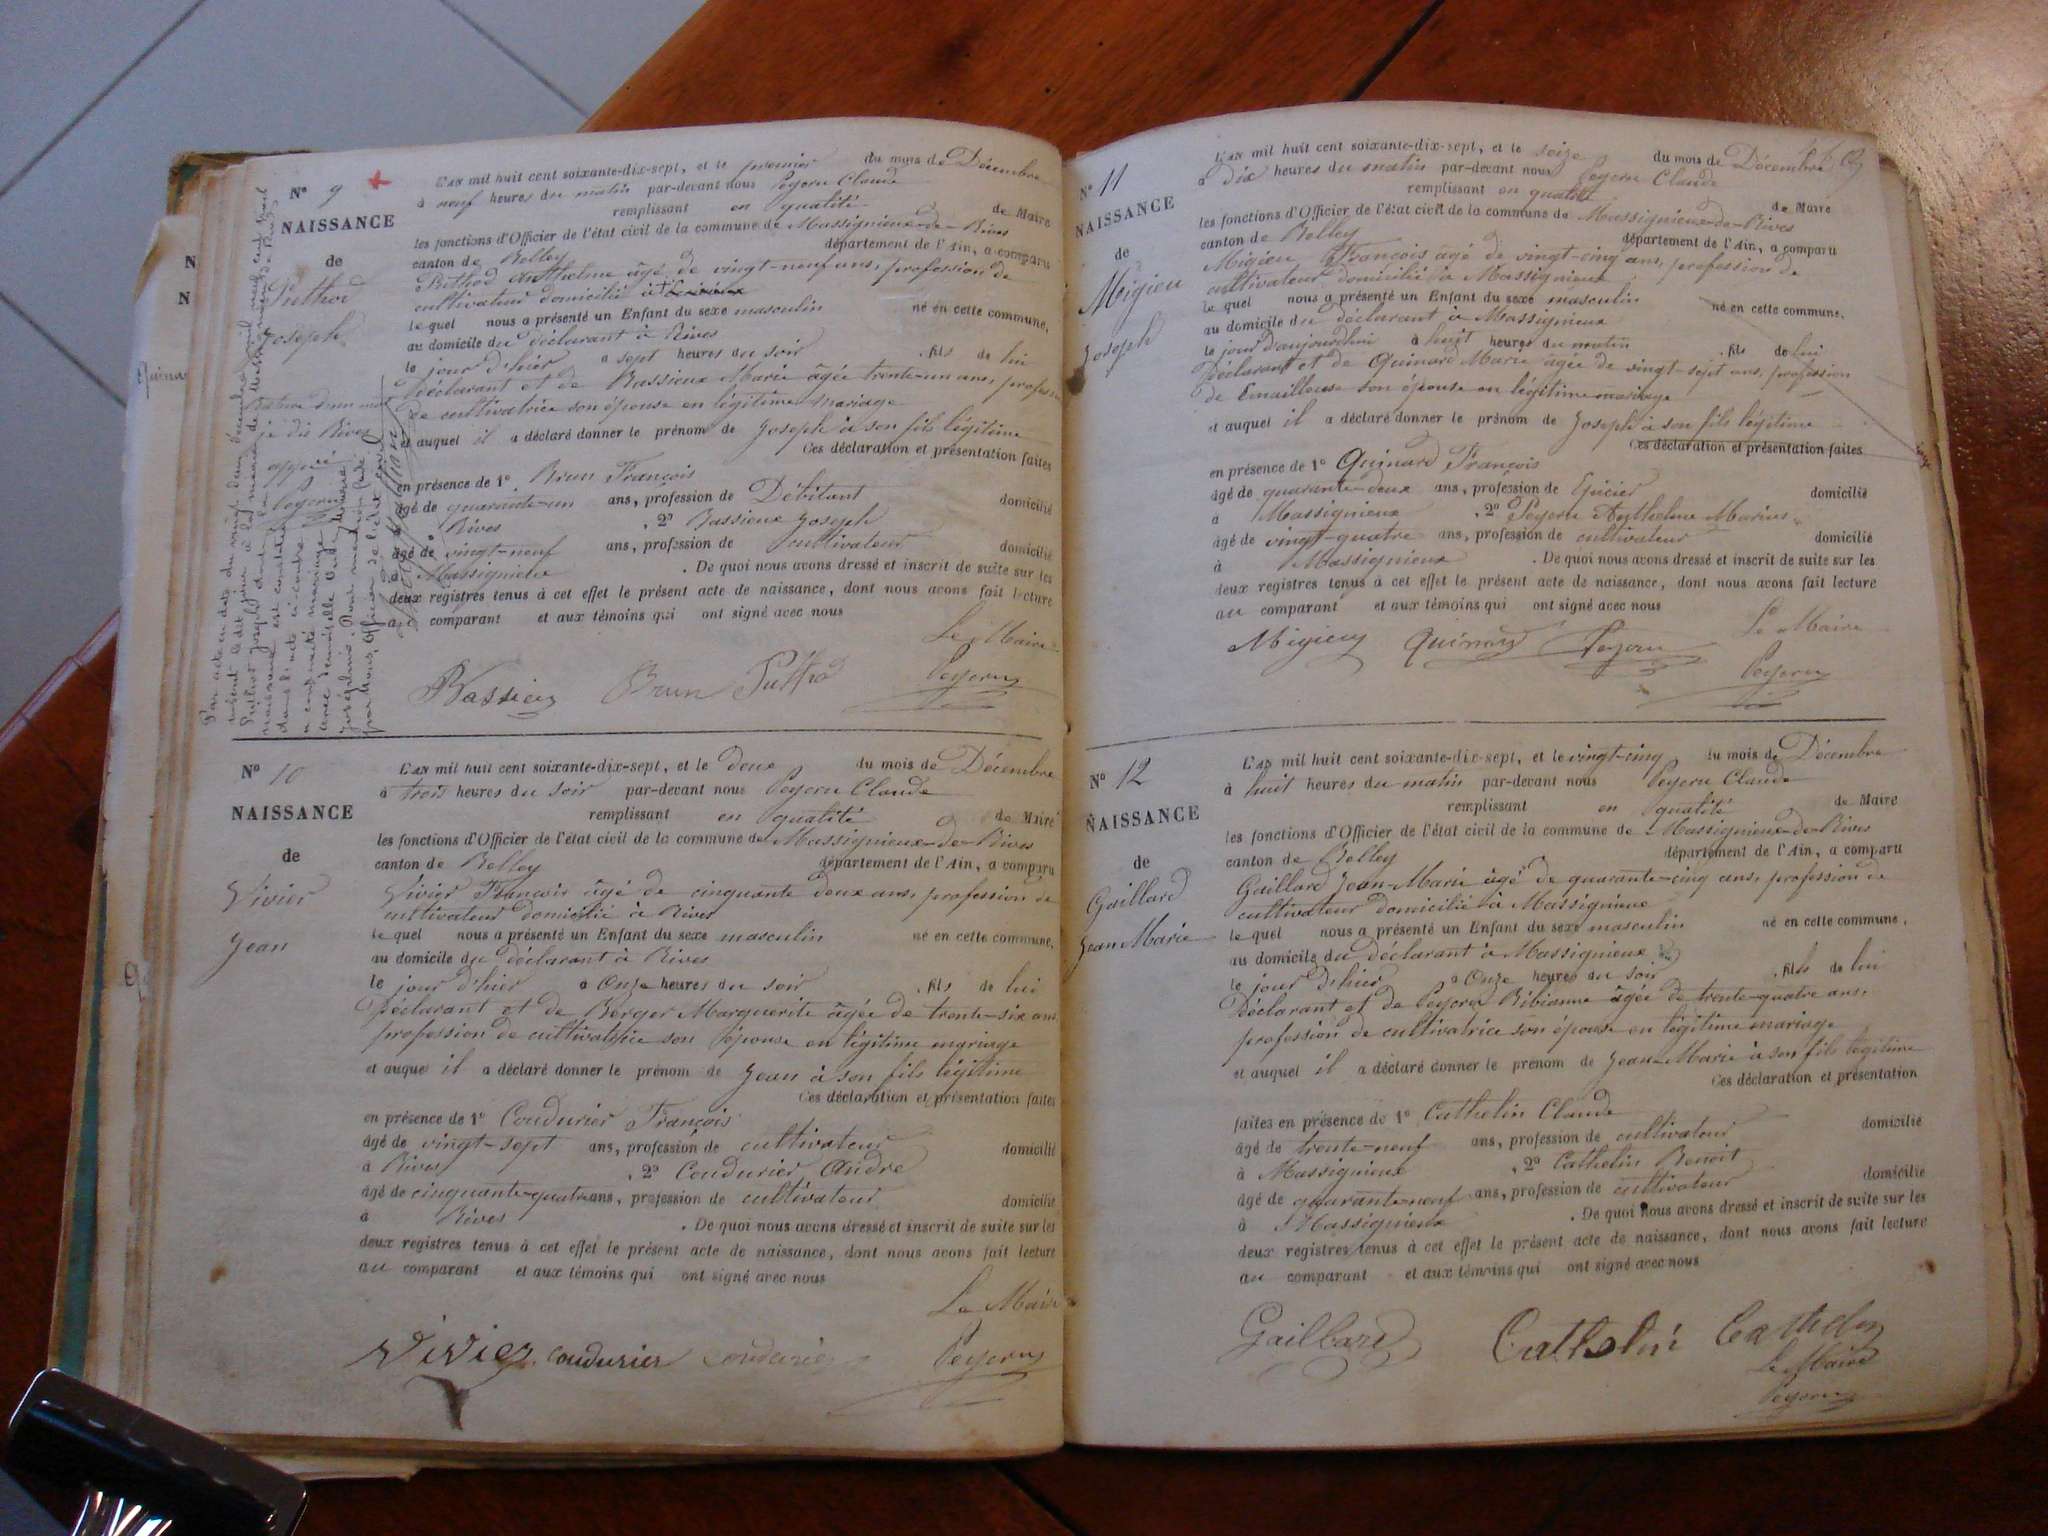 N° 9
NAISSANCE
de
Puthod
Joseph
L'AN mil huit cent soixante-dix-sept, et le premier du mois de Décembre
à neuf heures du matin par-devant nous Peyern Claude
remplissant en qualité de Maire
les fonctions d'Officier de l'état civil de la commune de Massignieux-de-Rives
canton de Belley département de l'Ain, a comparu
Puthod Anthelme âgé de vingt-neuf ans, profession de
cultivateur domicilié à
le quel nous a présenté un Enfant du sexe masculin né en cette commune,
au domicile du déclarant à Rives
le jour d'hier à sept heures du soir fils de lui
Déclarant et de Bassieux Marie âgée trente-un ans, profession
de cultivatrice son épouse en légitime mariage
et auquel il a déclaré donner le prénom de Joseph à son fils légitime
Ces déclaration et présentation faites
en présence de 1° Brun François
âgé de quarante-un ans, profession de Débitant domicilié
à Rives , 2° Bassieux Joseph
âgé de vingt-neuf ans, profession de cultivateur domicilié
à Massignieux . De quoi nous avons dressé et inscrit de suite sur les
deux registres tenus à cet effet le présent acte de naissance, dont nous avons fait lecture
au comparant et aux témoins qui ont signé avec nous
Le Maire
Bassieux Brun Puthod Peyern
je dis Rives
N° 10
NAISSANCE
de
Vivier
Jean
L'AN mil huit cent soixante-dix-sept, et le deux du mois de Décembre
à trois heures du soir par-devant nous Peyern Claude
remplissant en qualité de Maire
les fonctions d'Officier de l'état civil de la commune de Massignieux-de-Rives
canton de Belley département de l'Ain, a comparu
Vivier François âgé de cinquante deux ans, profession de
cultivateur domicilié à Rives
le quel nous a présenté un Enfant du sexe masculin né en cette commune,
au domicile du déclarant à Rives
le jour d'hier à Onze heures du soir , fils de lui
Déclarant et de Berger Marguerite âgée de trente-six ans
profession de cultivatrice son épouse en légitime mariage
et auquel il a déclaré donner le prénom de Jean à son fils légitime
Ces déclaration et présentation faites
en présence de 1° Coudurier François
âgé de vingt-sept ans, profession de cultivateur domicilié
à Rives , 2° Coudurier André
âgé de cinquante-quatre ans, profession de cultivateur domicilié
à Rives . De quoi nous avons dressé et inscrit de suite sur les
deux registres tenus à cet effet le présent acte de naissance, dont nous avons fait lecture
au comparant et aux témoins qui ont signé avec nous
Le Maire
Vivier coudurier coudurier Peyern
N° 11
NAISSANCE
de
Migieu
Joseph
L'AN mil huit cent soixante-dix-sept, et le seize du mois de Décembre
à dix heures du matin par-devant nous Peyern Claude
remplissant en qualité de Maire
les fonctions d'Officier de l'état civil de la commune de Massignieux-de-Rives
canton de Belley département de l'Ain, a comparu
Migieu François âgé de vingt-cinq ans, profession de
cultivateur domicilié à Massignieux
le quel nous a présenté un Enfant du sexe masculin né en cette commune,
au domicile du déclarant à Massignieux
le jour d'aujourd'hui à huit heures du matin , fils de lui
Déclarant et de Quinard Marie âgée de vingt-sept ans, profession
de son épouse en légitime mariage
et auquel il a déclaré donner le prénom de Joseph à son fils légitime
Ces déclaration et présentation faites
en présence de 1° Quinard François
âgé de quarante-deux ans, profession de Epicier domicilié
à Massignieux , 2° Peyern Anthelme Marius
âgé de vingt-quatre ans, profession de cultivateur domicilié
à Massignieux . De quoi nous avons dressé et inscrit de suite sur les
deux registres tenus à cet effet le présent acte de naissance, dont nous avons fait lecture
au comparant et aux témoins qui ont signé avec nous
Le Maire
Migieu Quinard Peyern Peyern
N° 12
NAISSANCE
de
Gaillard
Jean Marie
L'AN mil huit cent soixante-dix-sept, et le vingt-cinq du mois de Décembre
à huit heures du matin par-devant nous Peyern Claude
remplissant en qualité de Maire
les fonctions d'Officier de l'état civil de la commune de Massignieux-de-Rives
canton de Belley département de l'Ain, a comparu
Gaillard Jean-Marie âgé de quarante-cinq ans, profession de
cultivateur domicilié à Massignieux
le quel nous a présenté un Enfant du sexe masculin né en cette commune,
au domicile du Déclarant à Massignieux
le jour d'hier à Onze heures du soir , fils de lui
Déclarant et de Peyern Bibianne âgée de trente-quatre ans,
profession de cultivatrice son épouse en légitime mariage
et auquel il a déclaré donner le prénom de Jean-Marie à son fils légitime
Ces déclaration et présentation
faites en présence de 1° Cathelin Claude
âgé de trente-neuf ans, profession de cultivateur domicilié
à Massignieux , 2° Cathelin Benoit
âgé de quarante-neuf ans, profession de cultivateur domicilié
à Massignieux . De quoi nous avons dressé et inscrit de suite sur les
deux registres tenus à cet effet le présent acte de naissance, dont nous avons fait lecture
au comparant et aux témoins qui ont signé avec nous
Gaillard Cathelin Cathelin
Le Maire
Peyern